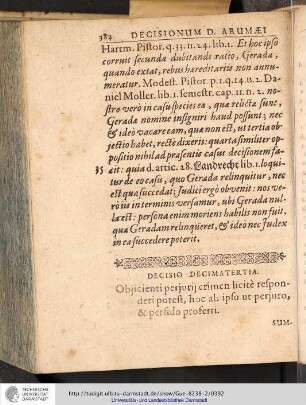 384 DECISIONUM D. ARUMÆI
Hartm. Pistor. q. 33. n. 24. lib. 1. Et hoc ipso
corruit secunda dubitandi ratio, Gerada,
quando extat, rebus hæreditariis non annu-
meratur. Modest. Pistor. p. 1. q. 14. n. 2. Da-
niel Moller. lib. 1. semestr. cap. 11. n. 2. no-
stro verò in casu species ea, qua relicta sunt,
Gerada nomine insigniri haud possunt; nec
& ideò vacare eam, qua non est, ut tertia ob-
jectio habet, rectè dixeris: quarta similiter op-
positio nihil ad præsentis casus decisionem fa-
35 cit: quia d. artic. 28. Landrecht lib. 1. loqui-
tur de eo casu, quo Gerada relinquitur, nec
est qua succedat; Judici ergò obvenit: nos ve-
rò iis in terminis versamur, ubi Gerada nul-
la est: persona enim moriens habilis non fuit,
qua Geradam relinqueret, & ideò nec Judex
in ea succedere poterit.
DECISIO DECIMATERTIA.
Objicienti perjurij crimen licitè respon-
deri potest, hoc ab ipso ut perjuro,
& perfido proferri.
SUM.
TECHNISCHE
UNIVERSITÄT
DARMSTADT
http://tudigit.ulb.tu-darmstadt.de/show/Gue-8238-2/0392
Universitäts- und Landesbibliothek Darmstadt